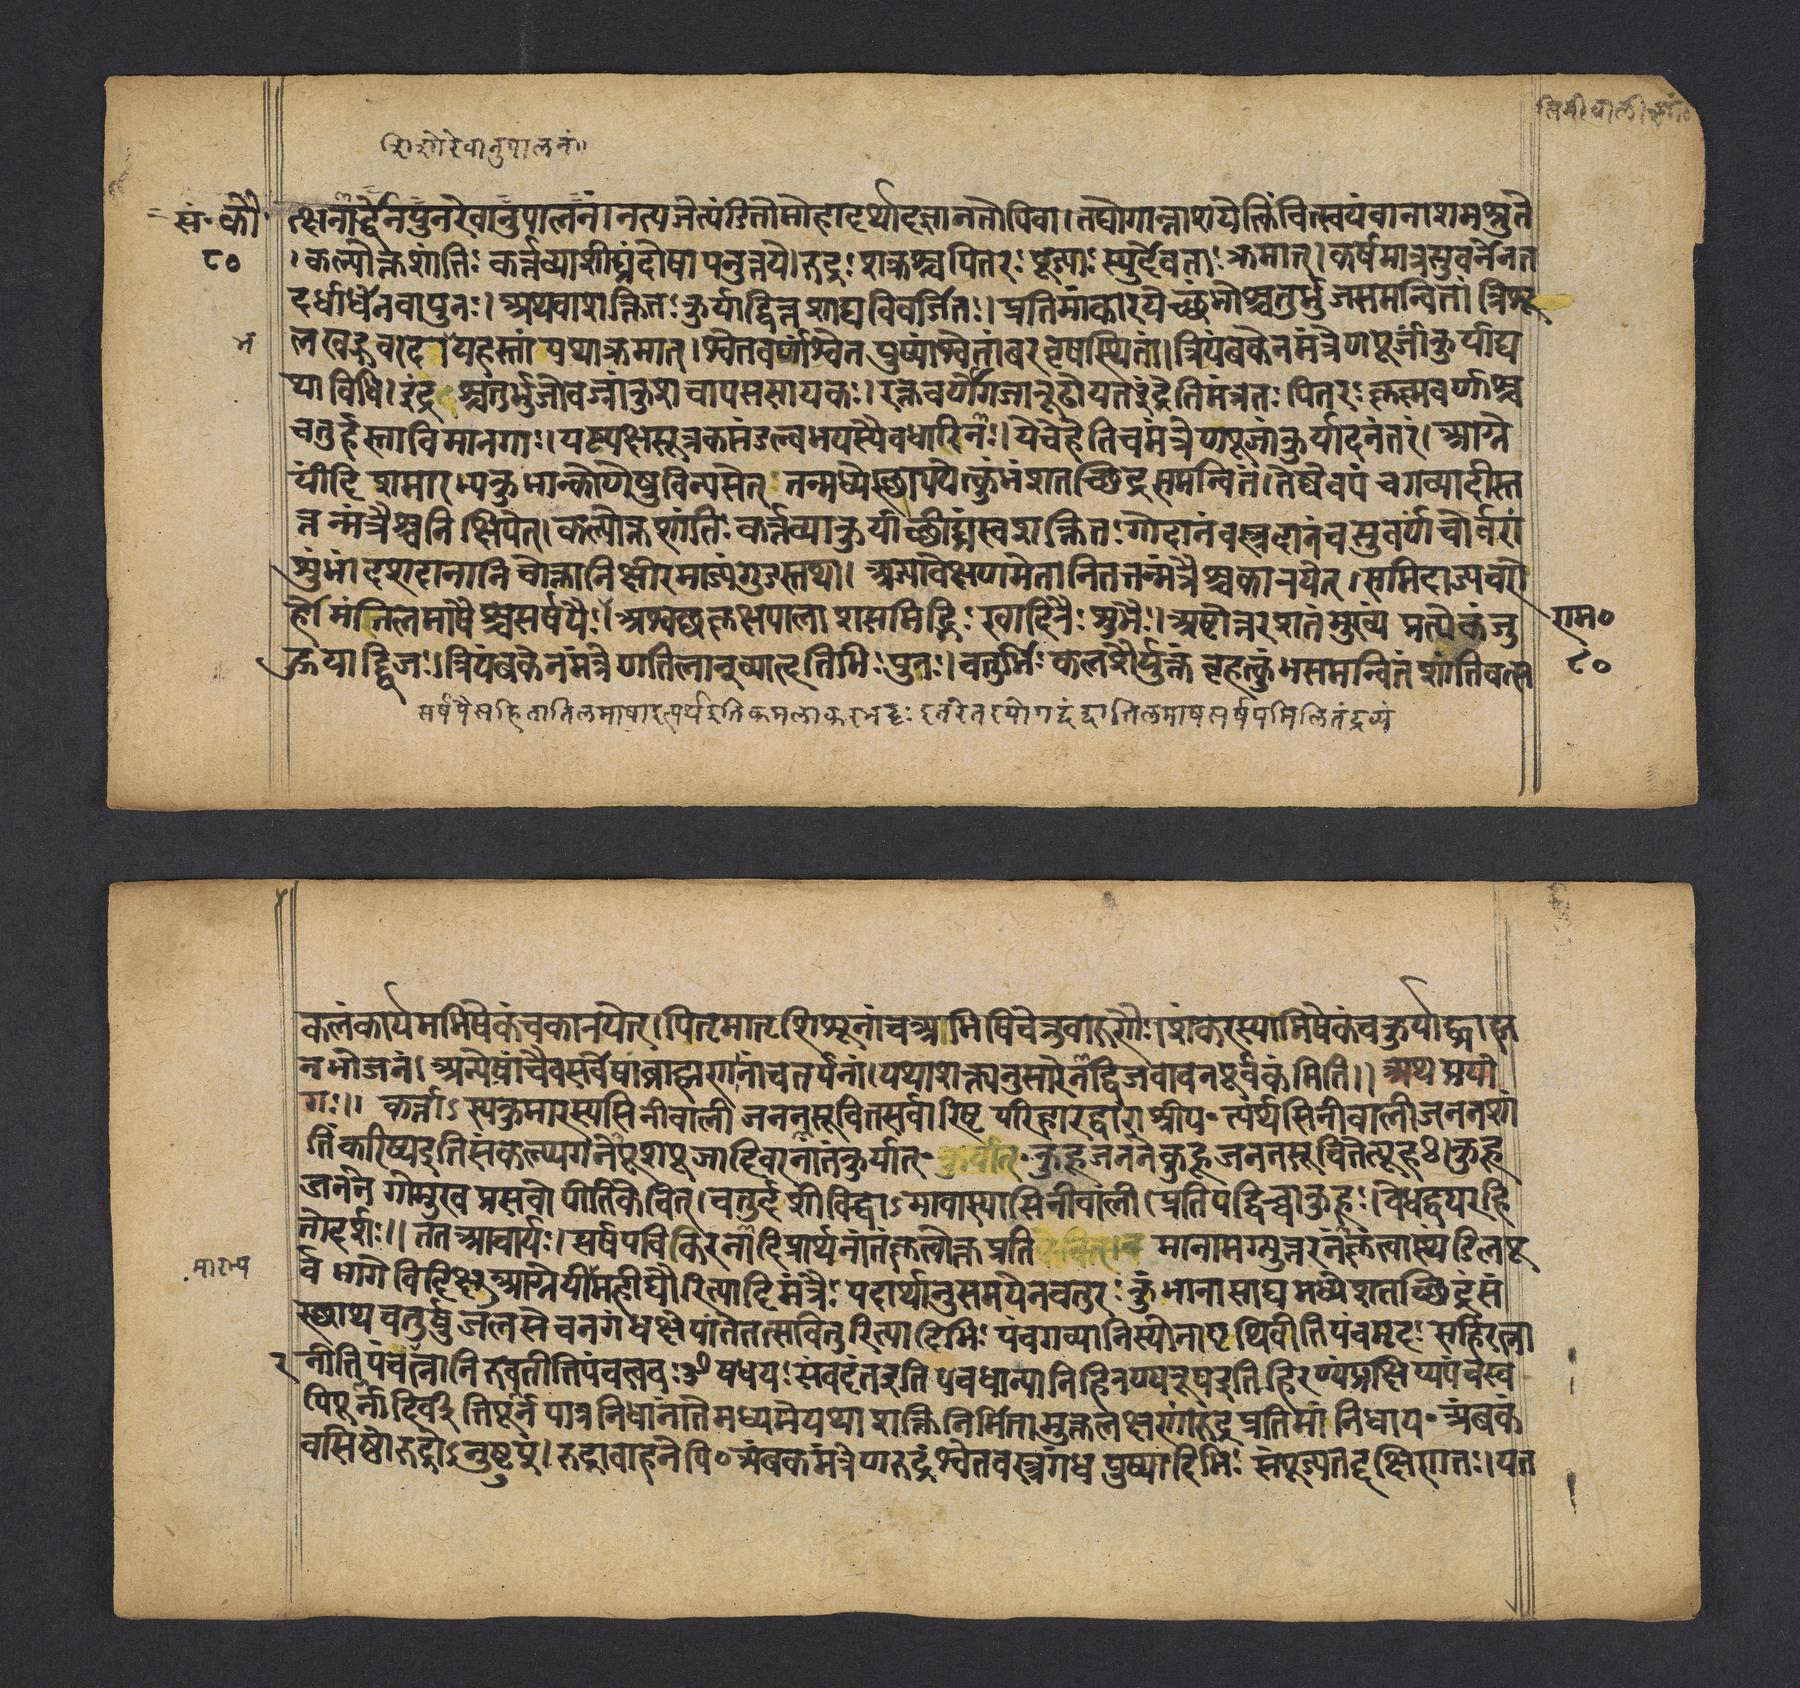 सिनीवालीशां०
रोरेवानुपालनं॥
सं॰कौ॰ त्क्षनार्द्धेनपुनरेवानुपालनं।नत्यजेत्पंडितोमोहादर्थादज्ञानतोपिवा।तद्योगान्नाशयेत्किंचित्स्वयंवानाशमश्नुते
८० ।कल्पोक्तशांतिः कर्त्तव्याशीघ्रंदोषापनुत्तये।रुद्रः शक्रश्चपितरः पूज्याः स्युर्देवताः क्रमात्।कर्षमात्रसुवर्नेनत
दर्धार्धेनवापुनः।अथवाशक्तितः कुर्याद्वित्तशाठ्यविवर्जितः।प्रतिमांकारयेच्छंभोश्चतुर्भुजसमन्वितां।त्रिशू
लखड्गवरदाभयहस्तां यथाक्रमात्।श्वेतवर्णांश्वेत पुष्पांश्वेतांबरवृषस्थितां।त्रियंबकेनमंत्रेणपूजांकुर्याद्य
थाविधि।इंद्रश्चतुर्भुजोवज्रांकुशचापससायकः।रक्तवर्णोगजारूढोयतइंद्रेतिमंत्रतः पितरः कृष्णवर्णाश्च
चतुर्हस्ताविमानगाः।यष्ट्यक्षसूत्रकमंडल्वभयस्यैवधारिनः।येचेहेतिचमंत्रेणपूजांकुर्यादनंतरं।आग्ने
यींदिशमारभ्यकुंभान्कोणेषुविन्यसेत् तन्मध्येस्थापयेत्कुंभंशतच्छिद्रसमन्वितं।तेष्वेवपंचगव्यादींस्त
त्तन्मंत्रैश्चनिक्षिपेत्।कल्पोक्तशांतिः कर्त्तव्याकुर्याच्छीघ्रंस्वशक्तितः गोदानंवस्त्रदानंचसुवर्णंचोर्वरां
शुभां।दशदानानिचोक्तानिक्षीरमाज्यंगुडस्तथा।आज्यावेक्षणमेतानितत्तन्मंत्रैश्चकारयेत्।समिदाज्यचरो
र्होमंतिलमाषैश्चसर्षपैः।अश्वत्थप्लक्षपालाशसमिद्भिः खादिरैः शुभैः।अष्टोत्तरशतंमुख्यं प्रत्येकंजु राम०
हुयाद्द्विजः।त्रियंबकेनमंत्रेणतिलान्व्याहृतिभिः पुनः।चतुर्भिः कलशैर्युक्तंबृहत्कुंभसमन्वितं शांतिवत्स ८०
कलंकार्यमभिषेकंचकारयेत्।पितृमातृशिशूनांचअभिषिंचेत्तुवारुणैः।शंकरस्याभिषेकंचकुर्याद्ब्राह्म
नभोजनं।अन्येषांचैवसर्वेषांब्राह्मणानांचतर्पनां।यथाशक्त्यनुसारेनद्विजवाचनपूर्वकंमिति।। अथप्रयो
गः॥ कर्त्ताऽस्यकुमारस्यसिनीवाली जननसूचितसर्वारिष्ट परिहारद्वारा श्रीप॰त्यर्थंसिनीवालीजननशां
तिंकरिष्यइतिसंकल्प्यगनेशपूजादिवरनांतंकुर्यात्॰ कुर्यात्॰कुहूजननेकुहूजननसूचितेत्यूहः।कुहू
जनने गोमुखप्रसवोपीतिकेचित्।चतुर्दशीविद्धाऽमावास्यासिनीवाली।प्रतिपद्विद्धाकुहूः।वेधद्वयरहि
तोदर्शः॥ ततआचार्यः।सर्षपविकिरनादिप्रार्थनांतंकृत्वोक्तप्रति मानामग्न्युत्तरनंकृत्वास्थंडिलपू
र्वभागेविदिक्षुआग्नेयींमहीद्यौरित्यादिमंत्रैः पदार्थानुसमयेनचतुरः कुंभानासाद्यमध्येशतच्छिद्रंसं
स्थाप्यचतुर्षुजलसेचनगंधक्षेपांतेतत्सवितुरित्यादिभिः पंचगव्यानिस्योनापृथिवीतिपंचमृदः सहिरत्ना
नीतिपंचरत्नानिरुवतीतिपंचत्वचःओषधयः संवदंतइतिपंचधान्यानिहिरण्यरूपइतिहिरण्यंप्रक्षिप्यपंचस्व
पिपूर्नादर्वीइतिपूर्नपात्रनिधानांतेमध्यमेयथाशक्तिनिर्मितामुक्तलक्षणांरुद्रप्रतिमांनिधाय॰त्र्यंबकं
वसिष्ठोरुद्रोऽनुष्टुप्।रुद्रावाहनेपि०त्र्यंबकमंत्रेणरुद्रंश्वेतवस्त्रगंधपुष्पादिभिः संपूज्यतद्दक्षिणतः।यत